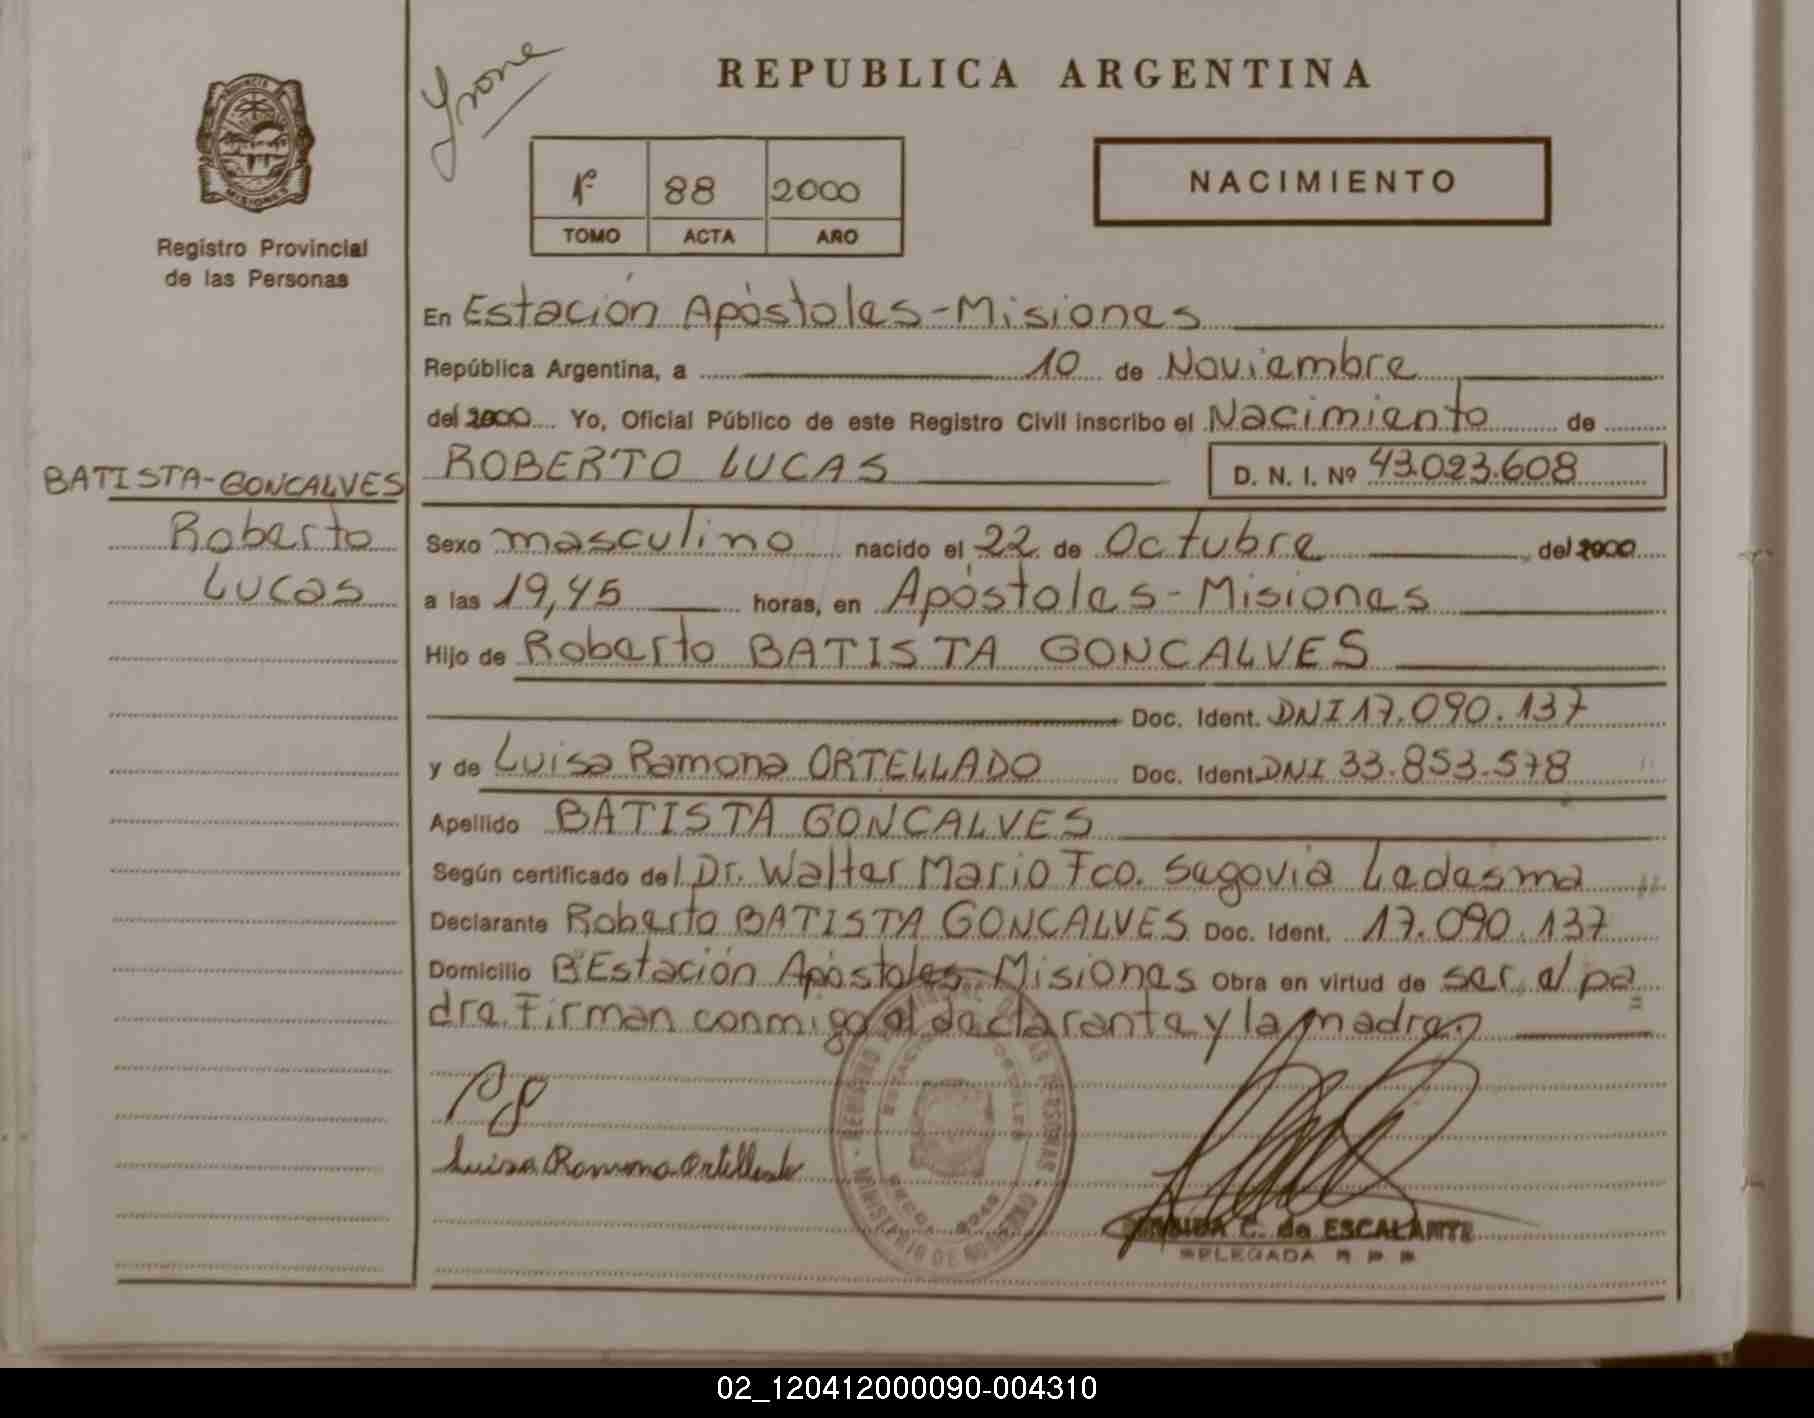 Registro Provincial
de las Personas
REPUBLICA ARGENTINA
1º 88 2000
TOMO ACTA AÑO
NACIMIENTO
En Estación Apóstoles-Misiones
República Argentina, a 10 de Noviembre
del 2000 Yo, Oficial Público de este Registro Civil inscribo el Nacimiento de
ROBERTO LUCAS D. N. I. Nº 43.023.608
BATISTA-GONCALVES
Roberto
Lucas
Sexo masculino nacido el 22 de Octubre del 2000
a las 19,45 horas, en Apóstoles-Misiones
Hijo de Roberto BATISTA GONCALVES
Doc. Ident. DNI 17.090.137
y de Luisa Ramona ORTELLADO Doc. Ident. DNI 33.853.578
Apellido BATISTA GONCALVES
Según certificado del Dr. Walter Mario Fco. Segovia Ledesma
Declarante Roberto BATISTA GONCALVES Doc. Ident. 17.090.137
Domicilio Bº Estación Apóstoles-Misiones Obra en virtud de ser el pa
dre. Firman conmigo el declarante y la madre.
Luisa Ramona Ortellado
C. de ESCALANTE
DELEGADA R P P
02_120412000090-004310